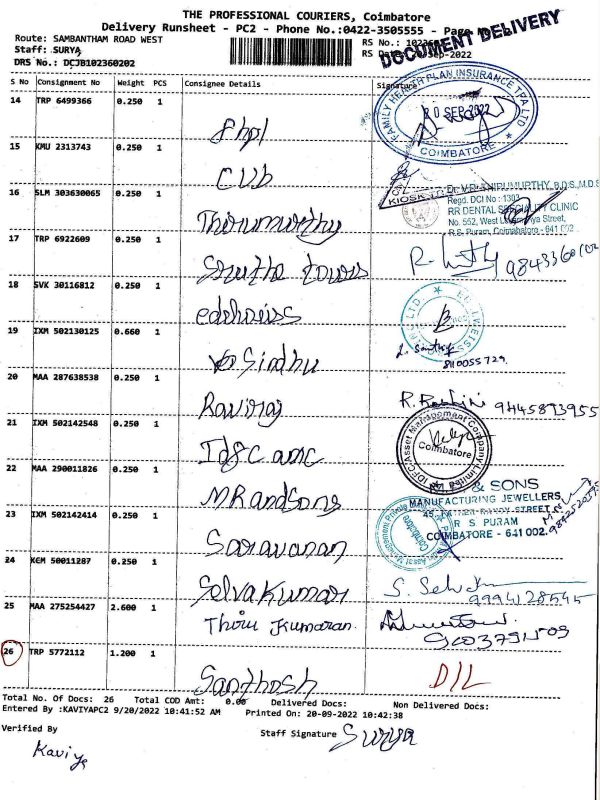 THE PROFESSIONAL COURIERS, Coimbatore
Delivery Runsheet - PC2 - Phone No.:0422-3505555 - Page No.
DOCUMENT DELIVERY
Route: SAMBANTHAM ROAD WEST
Staff: SURYA
DRS No.: DCJB102360202
S No Consignment No Weight PCS Consignee Details Signature
14 TRP 6499366 0.250 1
Fhpl
FAMILY HEALTH PLAN INSURANCE TPA LTD
20 SEP 2022
COIMBATORE
15 KMU 2313743 0.250 1
CUb
KIOSK
16 SLM 303630065 0.250 1
Thirumurthy
THIRUMURTHY, B.D.S., M.D.S
Regd. DCI No : 1303
RR DENTAL SPECIALITY CLINIC
No. 552, West Street,
R.S. Puram, Coimabatore - 641 002
17 TRP 6922609 0.250 1
towers
9843360102
18 SVK 30116812 0.250 1
edelweiss
19 IXM 502130125 0.660 1
Sindhu
8110055729
20 MAA 287638538 0.250 1
Raviraj
9445893955
21 IXM 502142548 0.250 1
Idfc amc
IDFC Asset Management Company Limited
Coimbatore
22 MAA 290011826 0.250 1
MRandSons
& SONS
MANUFACTURING JEWELLERS
R S PURAM
COIMBATORE - 641 002.
23 IXM 502142414 0.250 1
Saravanan
Asset Management Private
Coimbatore
24 KEM 50011287 0.250 1
Selvakumar
9994128545
25 MAA 275254427 2.600 1
Thiru Kumaran
9003791509
26 TRP 5772112 1.200 1
Santhosh
D/L
Total No. Of Docs: 26 Total COD Amt: 0.00 Delivered Docs: Non Delivered Docs:
Entered By :KAVIYAPC2 9/20/2022 10:41:52 AM Printed On: 20-09-2022 10:42:38
Verified By Staff Signature Surya
Kaviya